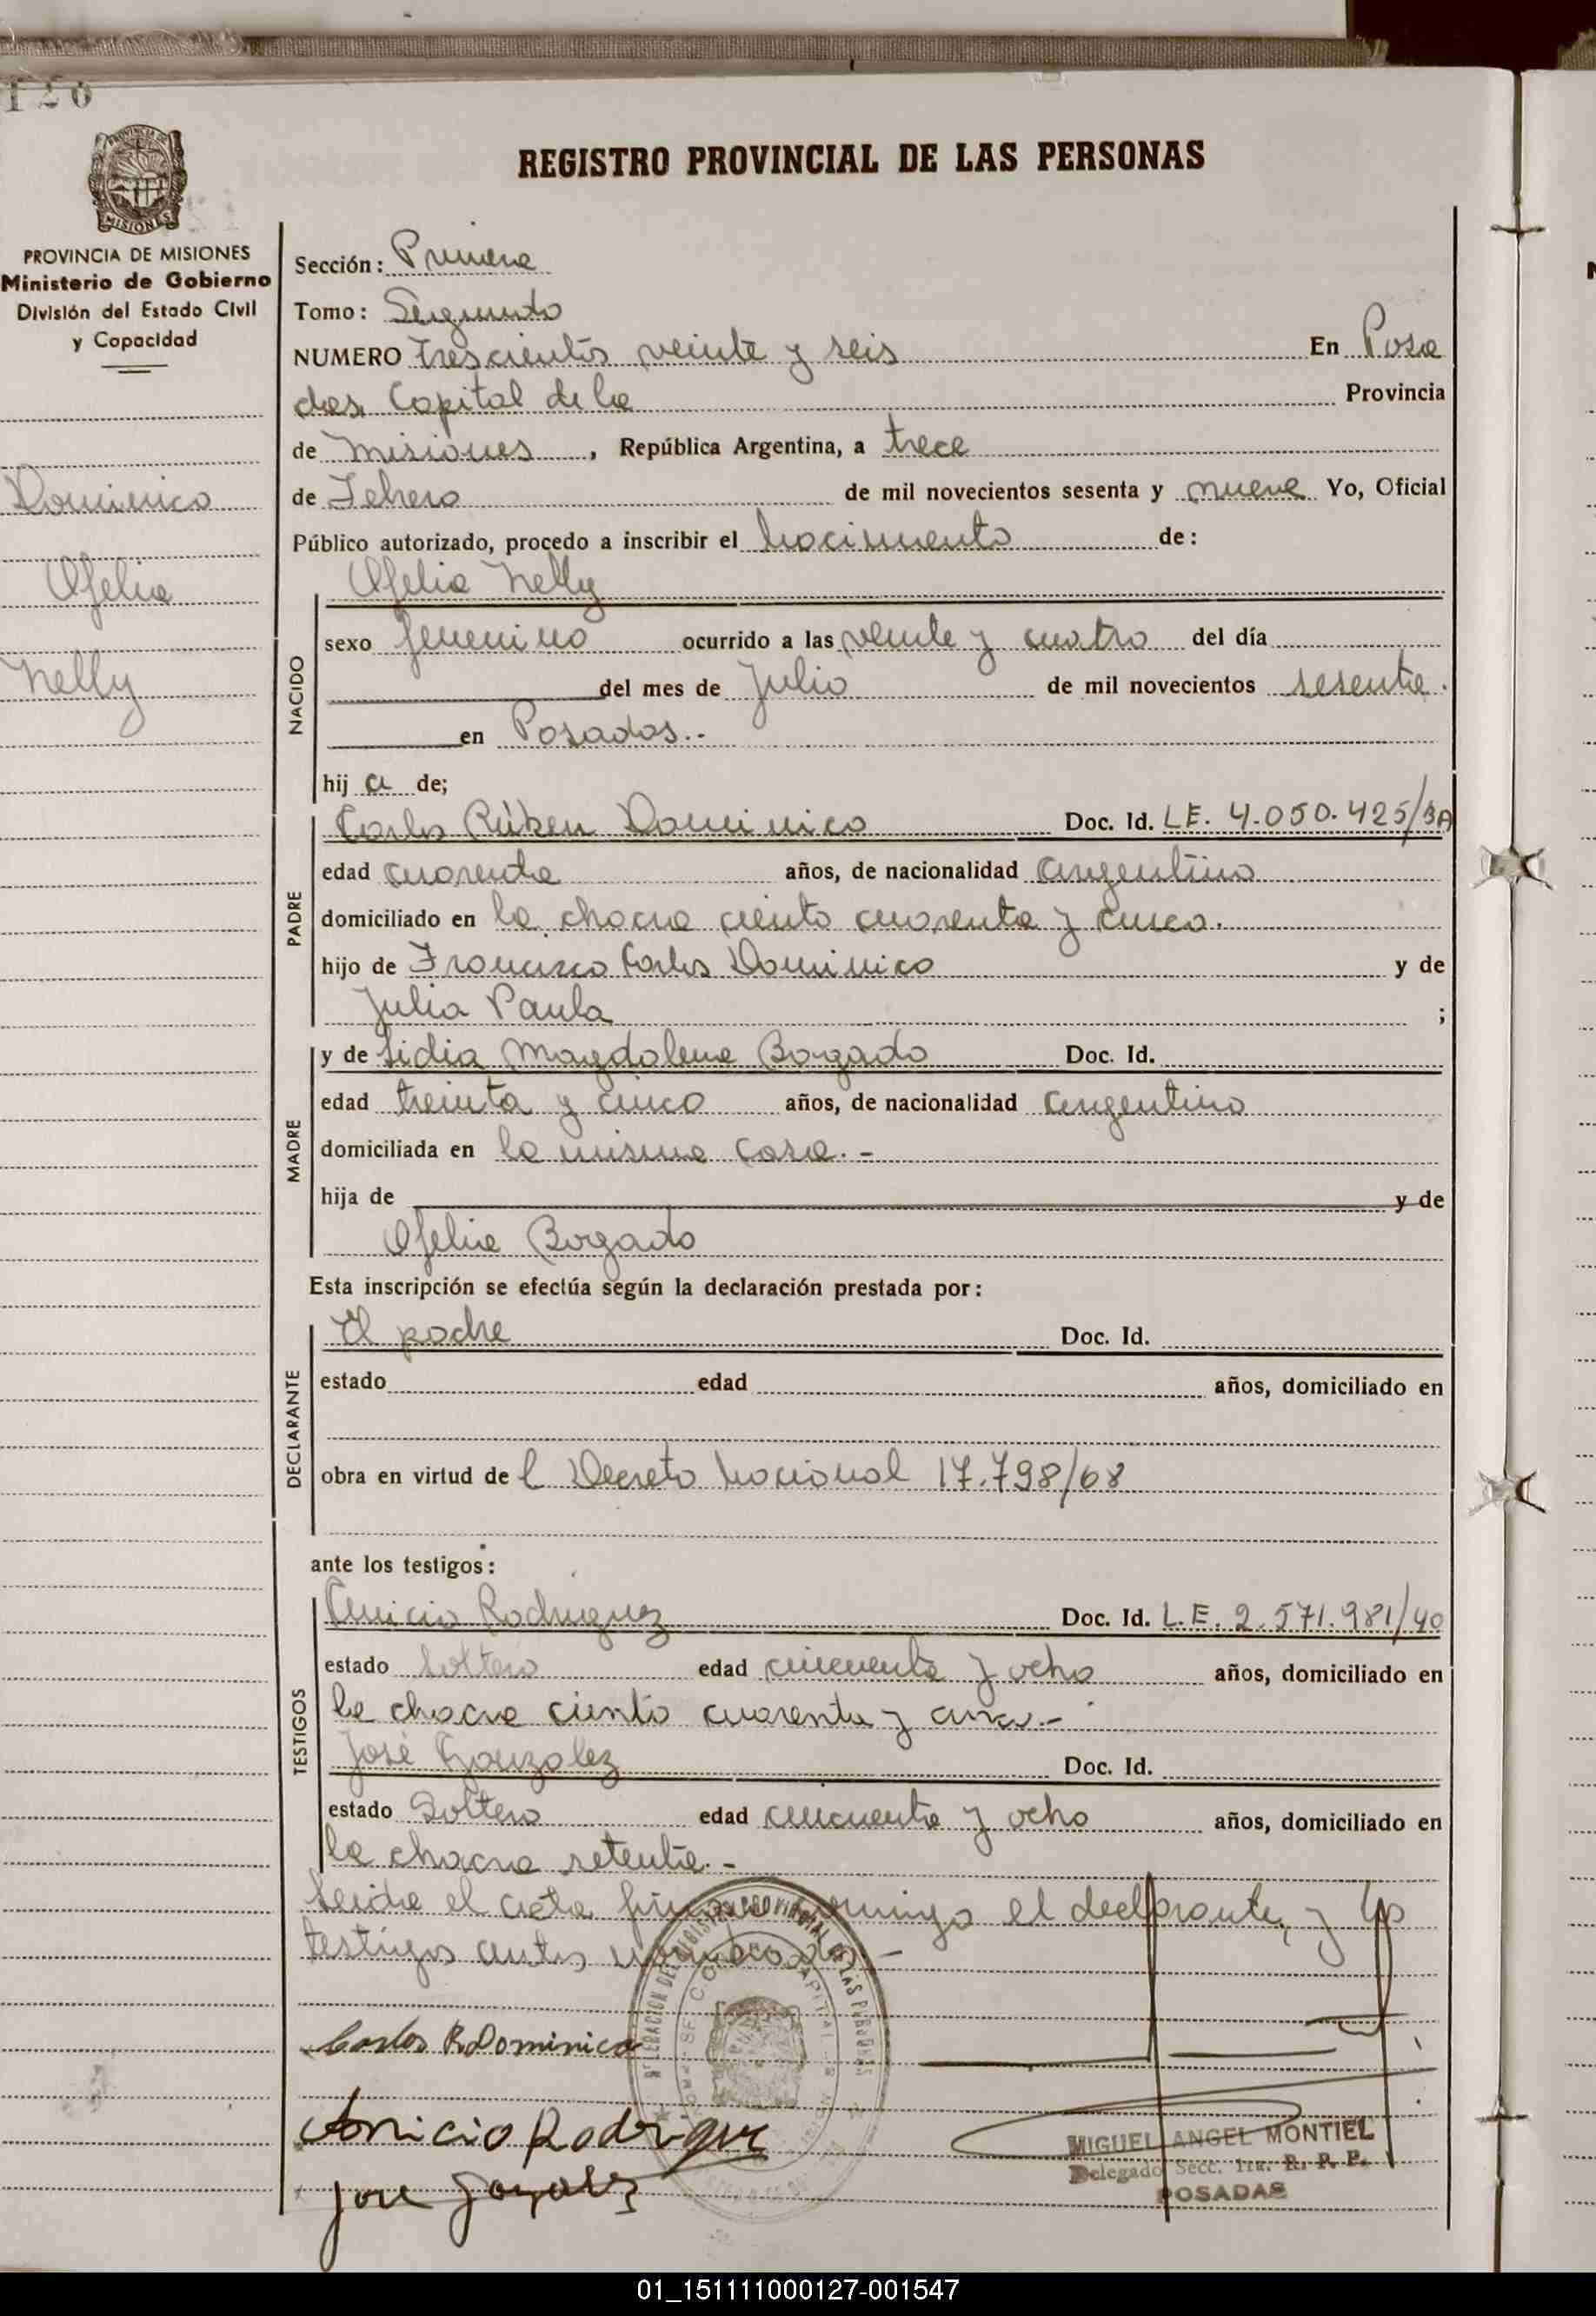 120
PROVINCIA DE MISIONES
Ministerio de Gobierno
División del Estado Civil
y Capacidad
Dominico
Ofelia
Nelly
REGISTRO PROVINCIAL DE LAS PERSONAS
Sección: Primera
Tomo: Segundo
NUMERO trescientos veinte y seis En Posa
das, Capital de la Provincia
de Misiones, República Argentina, a trece
de Febrero de mil novecientos sesenta y nueve Yo, Oficial
Público autorizado, procedo a inscribir el Nacimiento de:
Ofelia Nelly
NACIDO
sexo femenino ocurrido a las veinte y cuatro del día
del mes de Julio de mil novecientos sesenta.
en Posadas.-
hij a de;
PADRE
Carlos Rúben Dominico Doc. Id. LE. 4.050.425/3A
edad cuarenta años, de nacionalidad argentino
domiciliado en la chacra ciento cuarenta y cinco.
hijo de Francisco Carlos Dominico y de
Julia Paula ;
MADRE
y de Lidia Magdalena Borgado Doc. Id.
edad treinta y cinco años, de nacionalidad argentino
domiciliada en la misma casa.-
hija de y de
Ofelia Borgado
Esta inscripción se efectúa según la declaración prestada por:
DECLARANTE
El padre Doc. Id.
estado edad años, domiciliado en
obra en virtud de l Decreto Nacional 17.798/68
ante los testigos:
TESTIGOS
Anicio Rodriguez Doc. Id. L.E. 2.571.981/40
estado Soltero edad cincuenta y ocho años, domiciliado en
la chacra ciento cuarenta y cinco.-
José Gonzalez Doc. Id.
estado Soltero edad cincuenta y ocho años, domiciliado en
la chacra setenta.-
Leida el acta conmigo el declarante, y los
testigos antes
Carlos R Dominico
Anicio Rodrigue
Jose Gonzalez
MIGUEL ANGEL MONTIEL
Delegado Secc. 1ra. R. P. P.
POSADAS
01_151111000127-001547